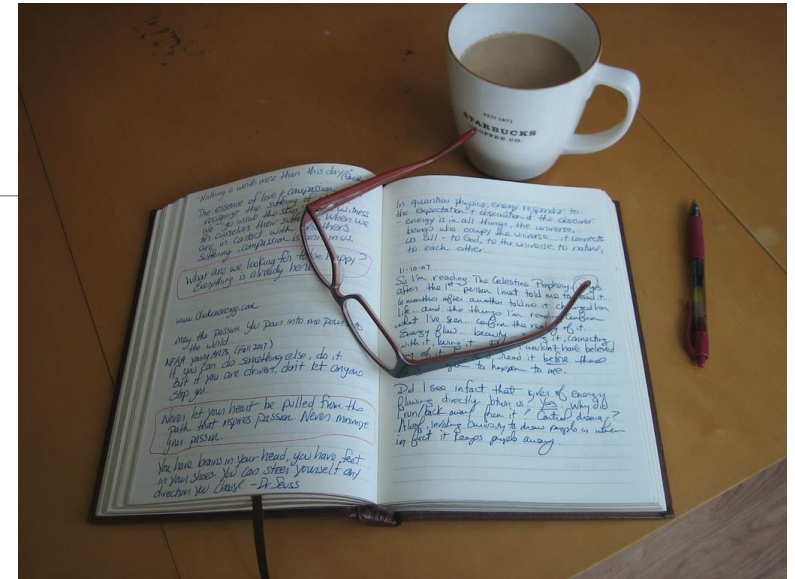 EST 1971
STARBUCKS
COFFEE CO.
"Nothing is worth more than this day"
The essence of love & compassion
recognize the suffering of
we "go inside the skin"
for ourselves their suffering When we
are in contact with
suffering, compassion is born in us.
What are we looking for to be happy?
Everything is already here
www.
May the passion you pour into me pour to
the world.
(Fall 2007)
If you can do something else, do it
But if you are driven, don't let anyone
stop you.
Never let your heart be pulled from the
path that inspires passion. Never minimize
your passion.
You have brains in your head, you have feet
in your shoes. You can steer yourself any
direction you choose - Dr. Seuss
In quantum physics, energy responds to
the expectation & observation of the observer
- energy is in all things, the universe,
beings who occupy the universe, it connects
us all - to God, to the universe, to nature,
to each other.
11-10-07
So I'm reading The Celestine Prophecy
after the 1st person I met told me to read it.
6 months after another told me it changed
life - and the things I'm reading confirm
what I've seen. Confirm the reality of it.
Energy flow.. beauty it, connecting
with it, wouldn't have believed
of it read it before these
to happen to me.
Did I see in fact that of energy
flowing directly btwn us? Yes. Why did
run/back away from it? Control drama?
Aloof, involving curiosity to draw people in when
in fact it keeps people away.